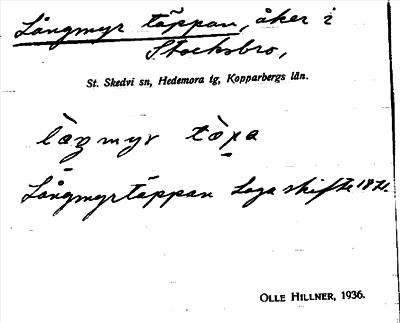 Långmyr täppan, åker i
Stocksbro,
St. Skedvi sn, Hedemora tg, Kopparbergs län.
làŋmyr tɑ̀pa
Långmyrtäppan Laga skifte 1821.
OLLE HILLNER, 1936.